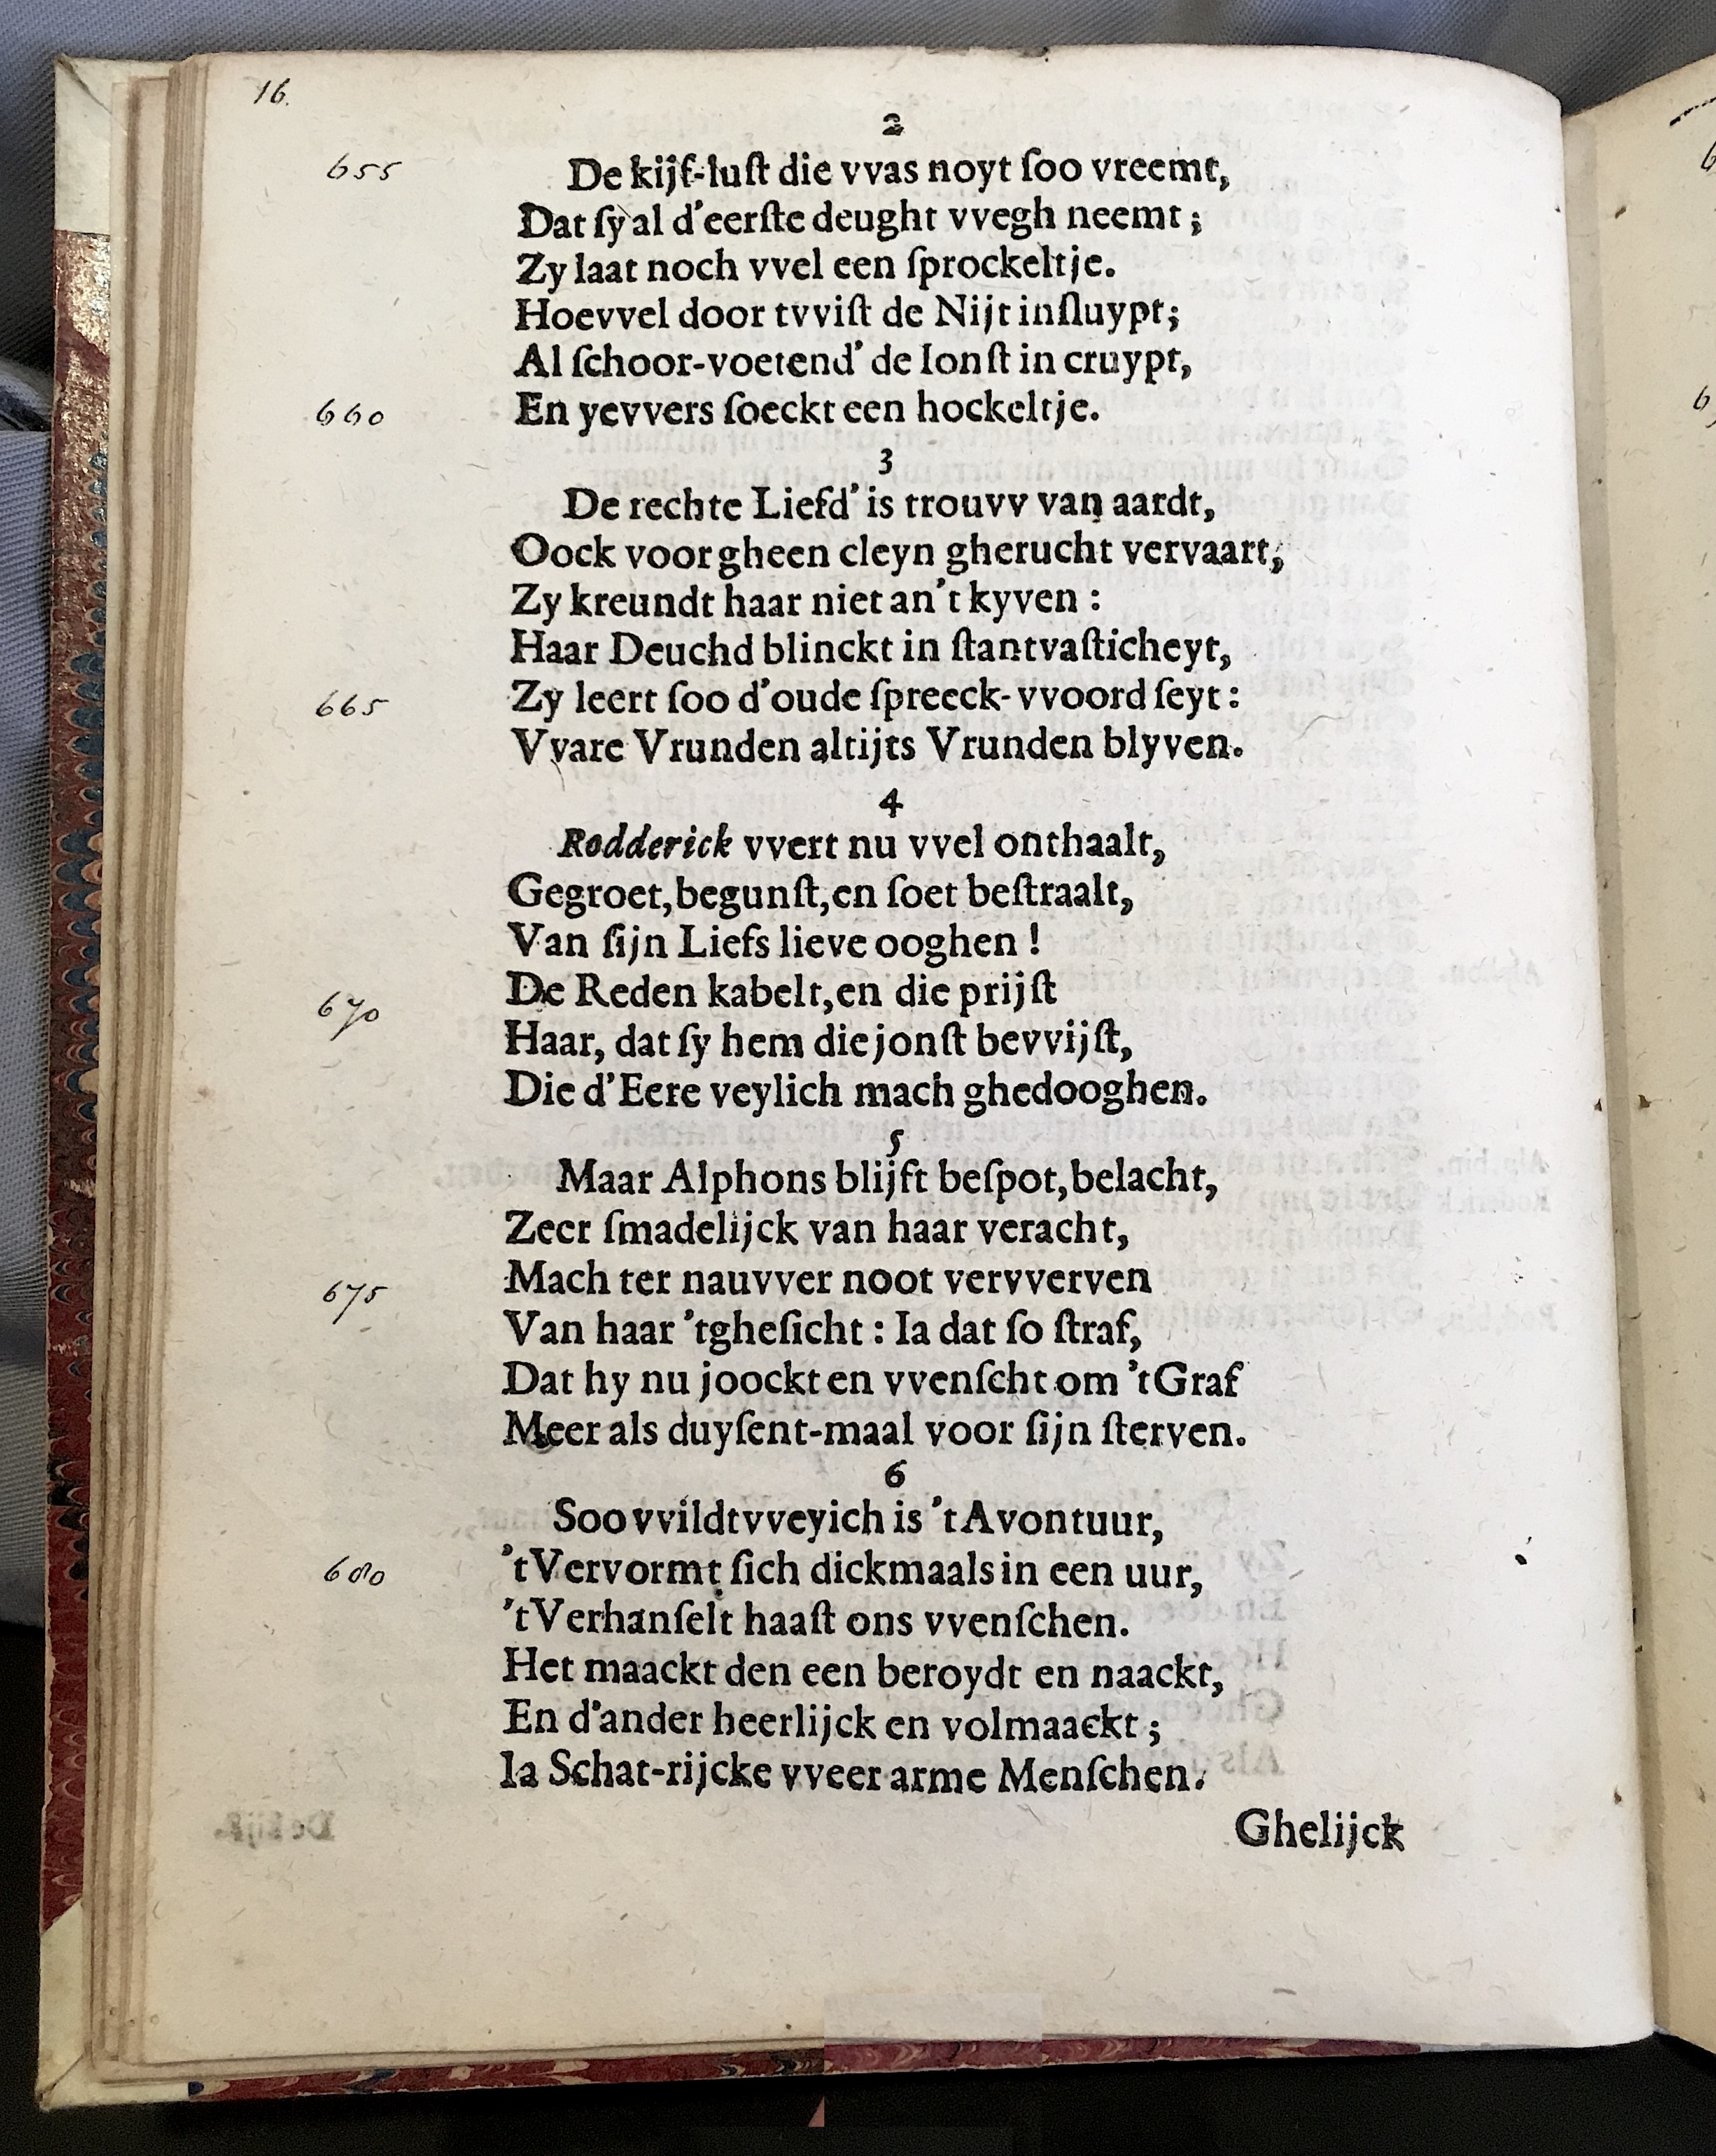 16.
2
655 De kijf-luſt die vvas noyt ſoo vreemt,
Dat ſy al d'eerſte deught vvegh neemt;
Zy laat noch vvel een ſprockeltje.
Hoevvel door tvviſt de Nijt inſluypt;
Al ſchoor-voetend' de Ionſt in cruypt,
660 En yevvers ſoeckt een hockeltje.
3
De rechte Liefd' is trouvv van aardt,
Oock voor gheen cleyn gherucht vervaart;
Zy kreundt haar niet an't kyven:
Haar Deuchd blinckt in ſtantvaſticheyt,
665 Zy leert ſoo d'oude ſpreeck-vvoord ſeyt:
Vvare Vrunden altijts Vrunden blyven.
4
Rodderick vvert nu vvel onthaalt,
Gegroet, begunſt, en ſoet beſtraalt,
Van ſijn Liefs lieve ooghen!
670 De Reden kabelt, en die prijſt
Haar, dat ſy hem die jonſt bevvijſt,
Die d'Eere veylich mach ghedooghen.
5
Maar Alphons blijft beſpot, belacht,
Zeer ſmadelijck van haar veracht,
675 Mach ter nauvver noot vervverven
Van haar 'tgheſicht: Ia dat ſo ſtraf,
Dat hy nu joockt en vvenſcht om 't Graf
Meer als duyſent-maal voor ſijn ſterven.
6
Soo vvildtvveyich is 't Avontuur,
680 't Vervormt ſich dickmaals in een uur,
't Verhanſelt haaſt ons vvenſchen.
Het maackt den een beroydt en naackt,
En d'ander heerlijck en volmaackt;
Ia Schat-rijcke vveer arme Menſchen.
Ghelijck